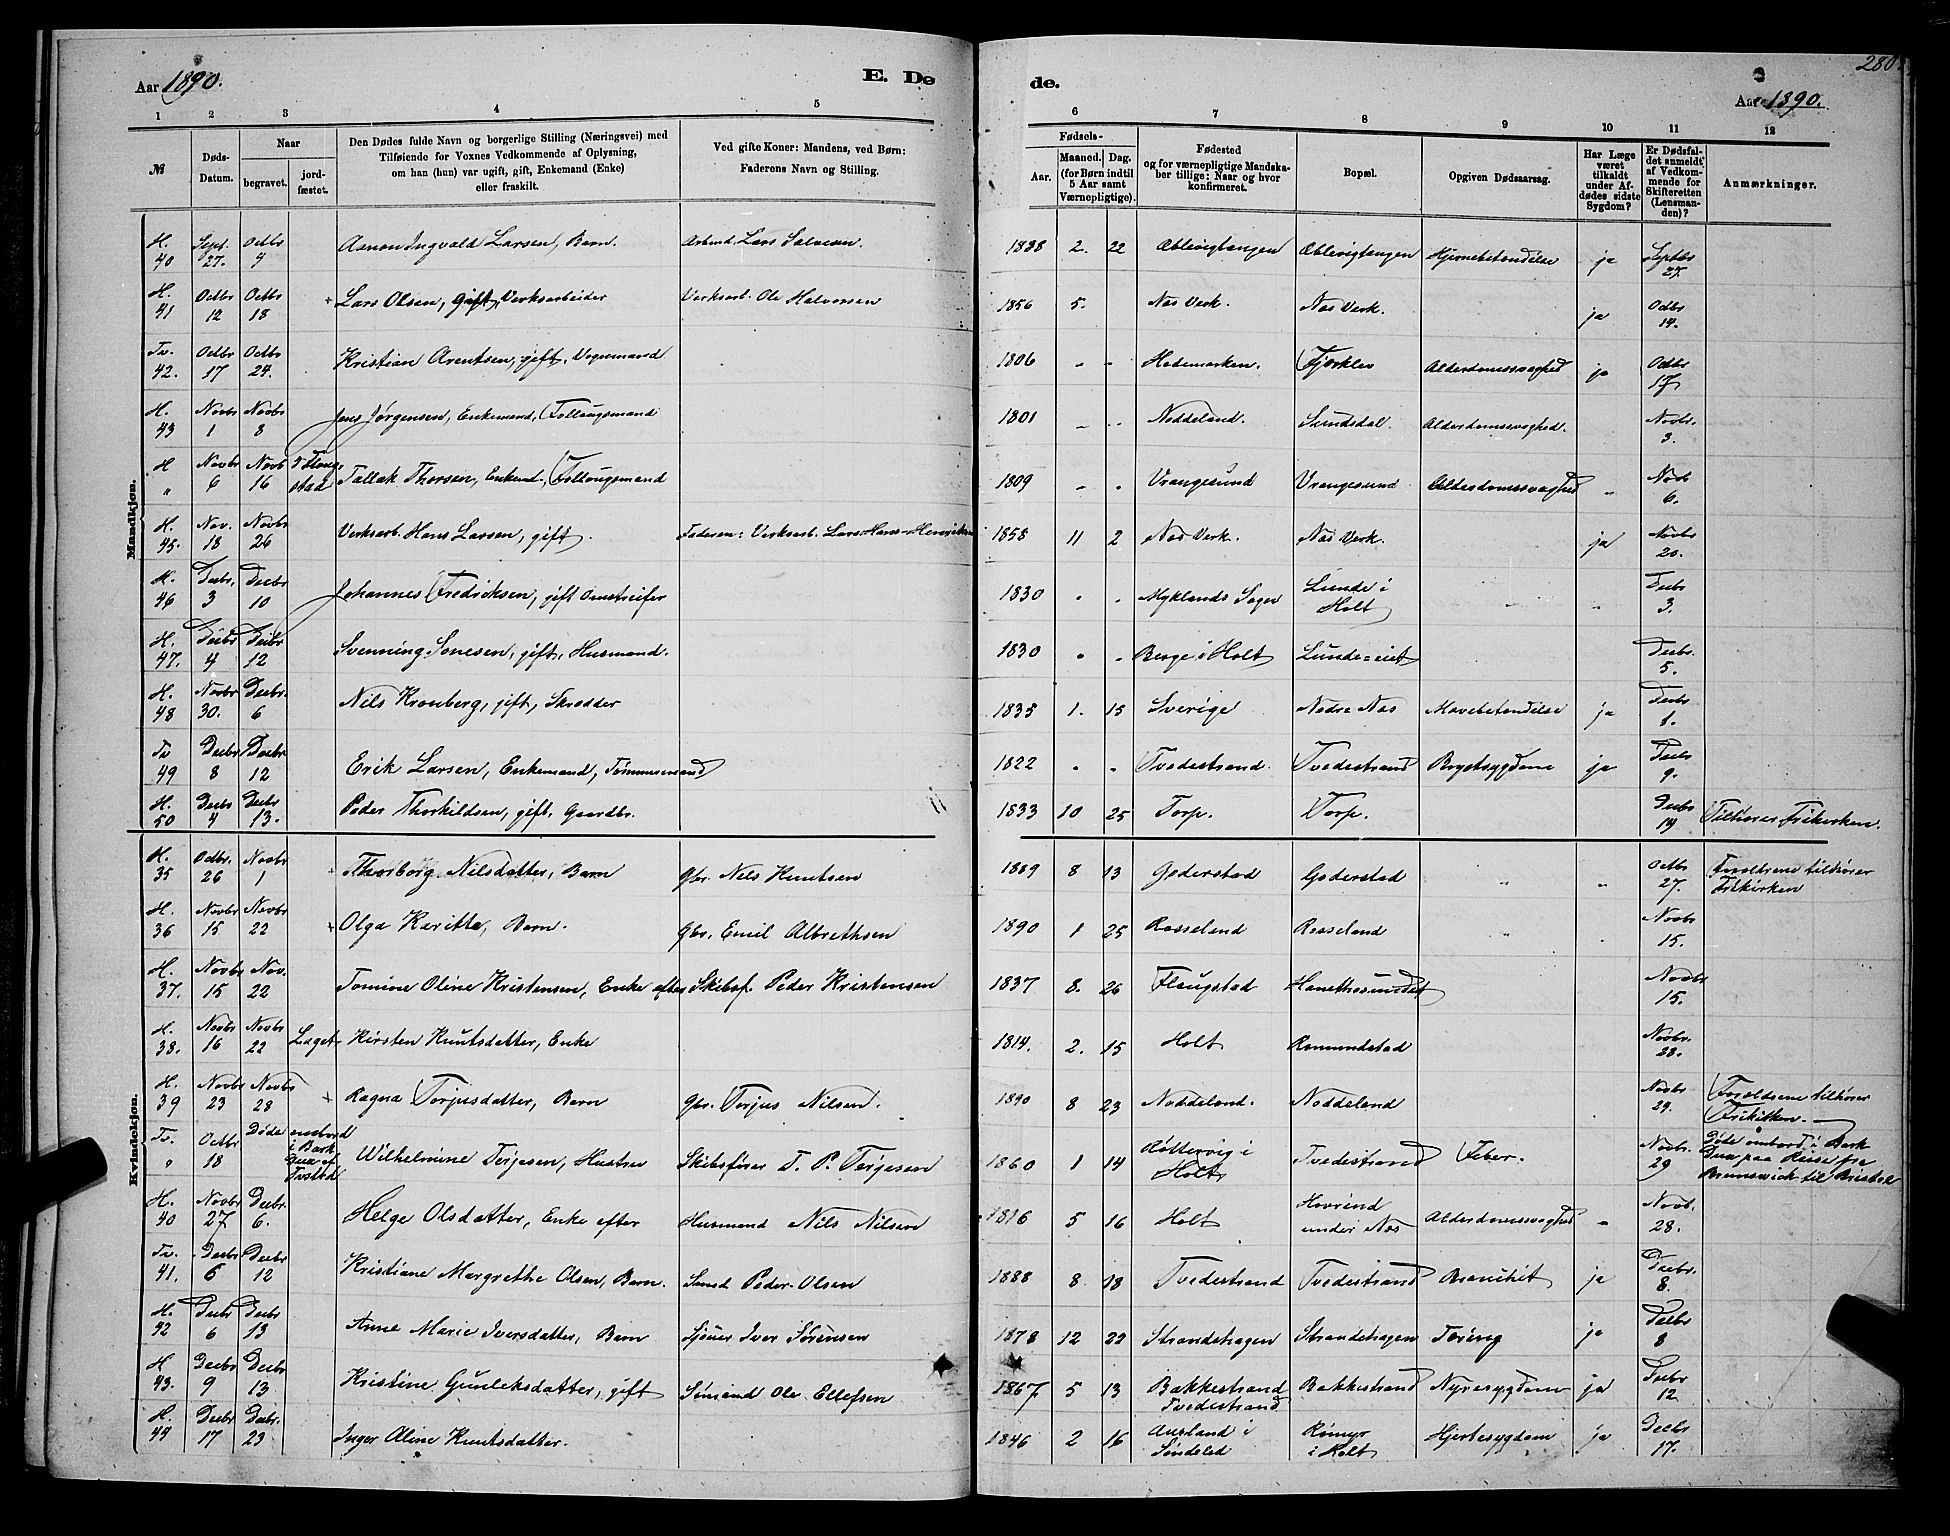 280
Aar 1890.
E. Dø
de.
Aar 1890.
1 2 3 4 5 6 7 8 9 10 11 12
№
Døds-Datum.
Naar
begravet.
jord-fæstet.
Den Dødes fulde Navn og borgerlige Stilling (Næringsvei) med
Tilføiende for Voxnes Vedkommende af Oplysning,
om han (hun) var ugift, gift, Enkemand (Enke)
eller fraskilt.
Ved gifte Koner: Mandens, ved Børn:
Faderens Navn og Stilling.
Fødsels-
Aar.
Maaned. Dag.
(for Børn indtil
5 Aar samt
Værnepligtige).
Fødested
og for værnepligtige Mandska-
ber tillige: Naar og hvor
konfirmeret.
Bopæl.
Opgiven Dødsaarsag.
Har Læge
været
tilkaldt
under Af-
dødes sidste
Sygdom?
Er Dødsfal-
det anmeldt
af Vedkom-
mende for
Skifteretten
(Lensman-
den)?
Anmærkninger.
Mandkjøn.
H. 40 Sept. 27. Octbr 4 Ingvald Larsen, Barn. Arbeid. Lars Salvesen. 1888 2. 22 Hjernebetændelse ja Septbr 27.
H. 41 Octbr 12 Octbr 18 Lars Olsen, gift, Verksarbeider Verksarb. Ole Halvorsen 1856 5. Næs Verk. Næs Verk. ja Octbr 14.
Tv. 42. Octbr 17 Octbr 24. Kristian Arentsen, gift, Vognmand 1806 " " Hedemarken. Fjærklev Alderdomssvaghed ja Octbr 17
H. 43 Novbr 1 Novbr 8 Jens Jørgensen, Enkemand, Føllaugsmand 1801 " " Noddeland. Sundsdal. Alderdomssvaghed. Novbr. 3.
H " Novbr 6 Novb 16 Flougstad Tallak Thorsen, Enkemd., Føllaugsmand 1809 " " Vrangesund Vrangesund Alderdomssvaghed " Novb 6.
H. 45. Nov. 18 Novbr 26 Verksarb. Hans Larsen, gift. Faderen: Verksarb. Lars Hans 1858 11 2 Næs Verk. Næs Verk. ja Novbr 20.
H. 46 Decbr. 3 Decbr 10 Johannes Fredriksen, gift Omstreifer 1830 " " Myklands Sogn Lunde i Holt " Decbr 3.
H. 47. Decbr 4 Decbr 12 Svenning Jonesen, gift, Husmand. 1830 " " Berge i Holt Lunde=eiet Decbr. 5.
H. 48 Novbr 30. Decbr. 6 Nils Kronberg, gift, Skrædder 1835 1. 15 Sverige Nedre Næs Mavebetændelse ja Decbr 1.
Tv 49 Decbr 8 Decbr 12 Erik Larsen, Enkemand, Tømmermand 1822 " " Tvedestrand. Tvedestrand Brystsygdom ja Decbr 9.
H. 50 Decbr 4 Decbr 13. Peder Thorkildsen, gift, Gaardbr. 1833 10 25 Torp. Torp. Decbr 14 Tilhører Frikirken.
Kvindekjøn.
H. 35 Octbr. 26 Novbr 1 Thorborg Nilsdatter, Barn gbr. Nils Knutsen 1889 8 13 Goderstad Goderstad " " Octbr 27. Forældrene tilhører Frikirken
H. 36 Novbr 15 Novbr 22 Olga Karitte, Barn. gbr. Emil Albrethsen 1890 1 25 Rosseland Rosseland " Novbr 15.
H. 37. Novbr 15 Nov. 22 Tomine Oline Kristensen, Enke efter Skibsf. Peder Kristensen 1837 8. 26 Flaugstad Novbr 15.
H. 38. Novbr 16 Novbr 22 Laget Kirsten Knutsdatter, Enke 1814. 2. 15 Holt Romundstad Novbr. 28.
H. 39 Novbr 23 Novbr 28 Ragna Torjusdatter, Barn gbr. Torjus Nilsen. 1890 8 23 Noddeland. Noddeland Novbr 29. Forældrene tilhører Frikirken.
Tv. " Octbr 18 Døde ombord i Bark Dux af Tvstrd Wilhelmine Terjesen, Hustru Skibsfører T. P. Terjesen 1860 1 14 i Holt Tvedestrand Feber. Novbr. 29 Døde ombord i Bark Dux paa Reise fra Brunswick til Bristol
H. 40 Novbr 27 Decbr. 6. Helge Olsdatter, Enke efter Husmand Nils Nilsen 1816 5 16 Holt Hovrind under Næs Alderdomssvaghed " Novb. 28.
Tv. 41. Decbr 6 Decbr 12 Kristiane Margrethe Olsen, Barn. Sømd Peder Olsen 1888 8. 18 Tvedestrand Tvedestrand Bronchit ja Decbr. 8.
H. 42 Decbr 6 Decbr 13 Anne Marie Iversdatter, Barn Sjøm Iver Sørensen 1878 12 22 Strandehagen Strandehagen Tæring ja Decbr 8
H 43. Decbr 9 Decbr 13 Kristine Gunleksdatter, gift Sømand Ole Ellefsen 1867 5 13 Bakkestrand Tvedestrand Bakkestrand Nyresygdom ja Decbr 12
H. 44 Decbr 17 Decbr. 23 Inger Oline Knutsdatter. 1846 2 16 Ausland i Søndeled Rømyr i Holt Hjertesygdom ja Decbr 17.